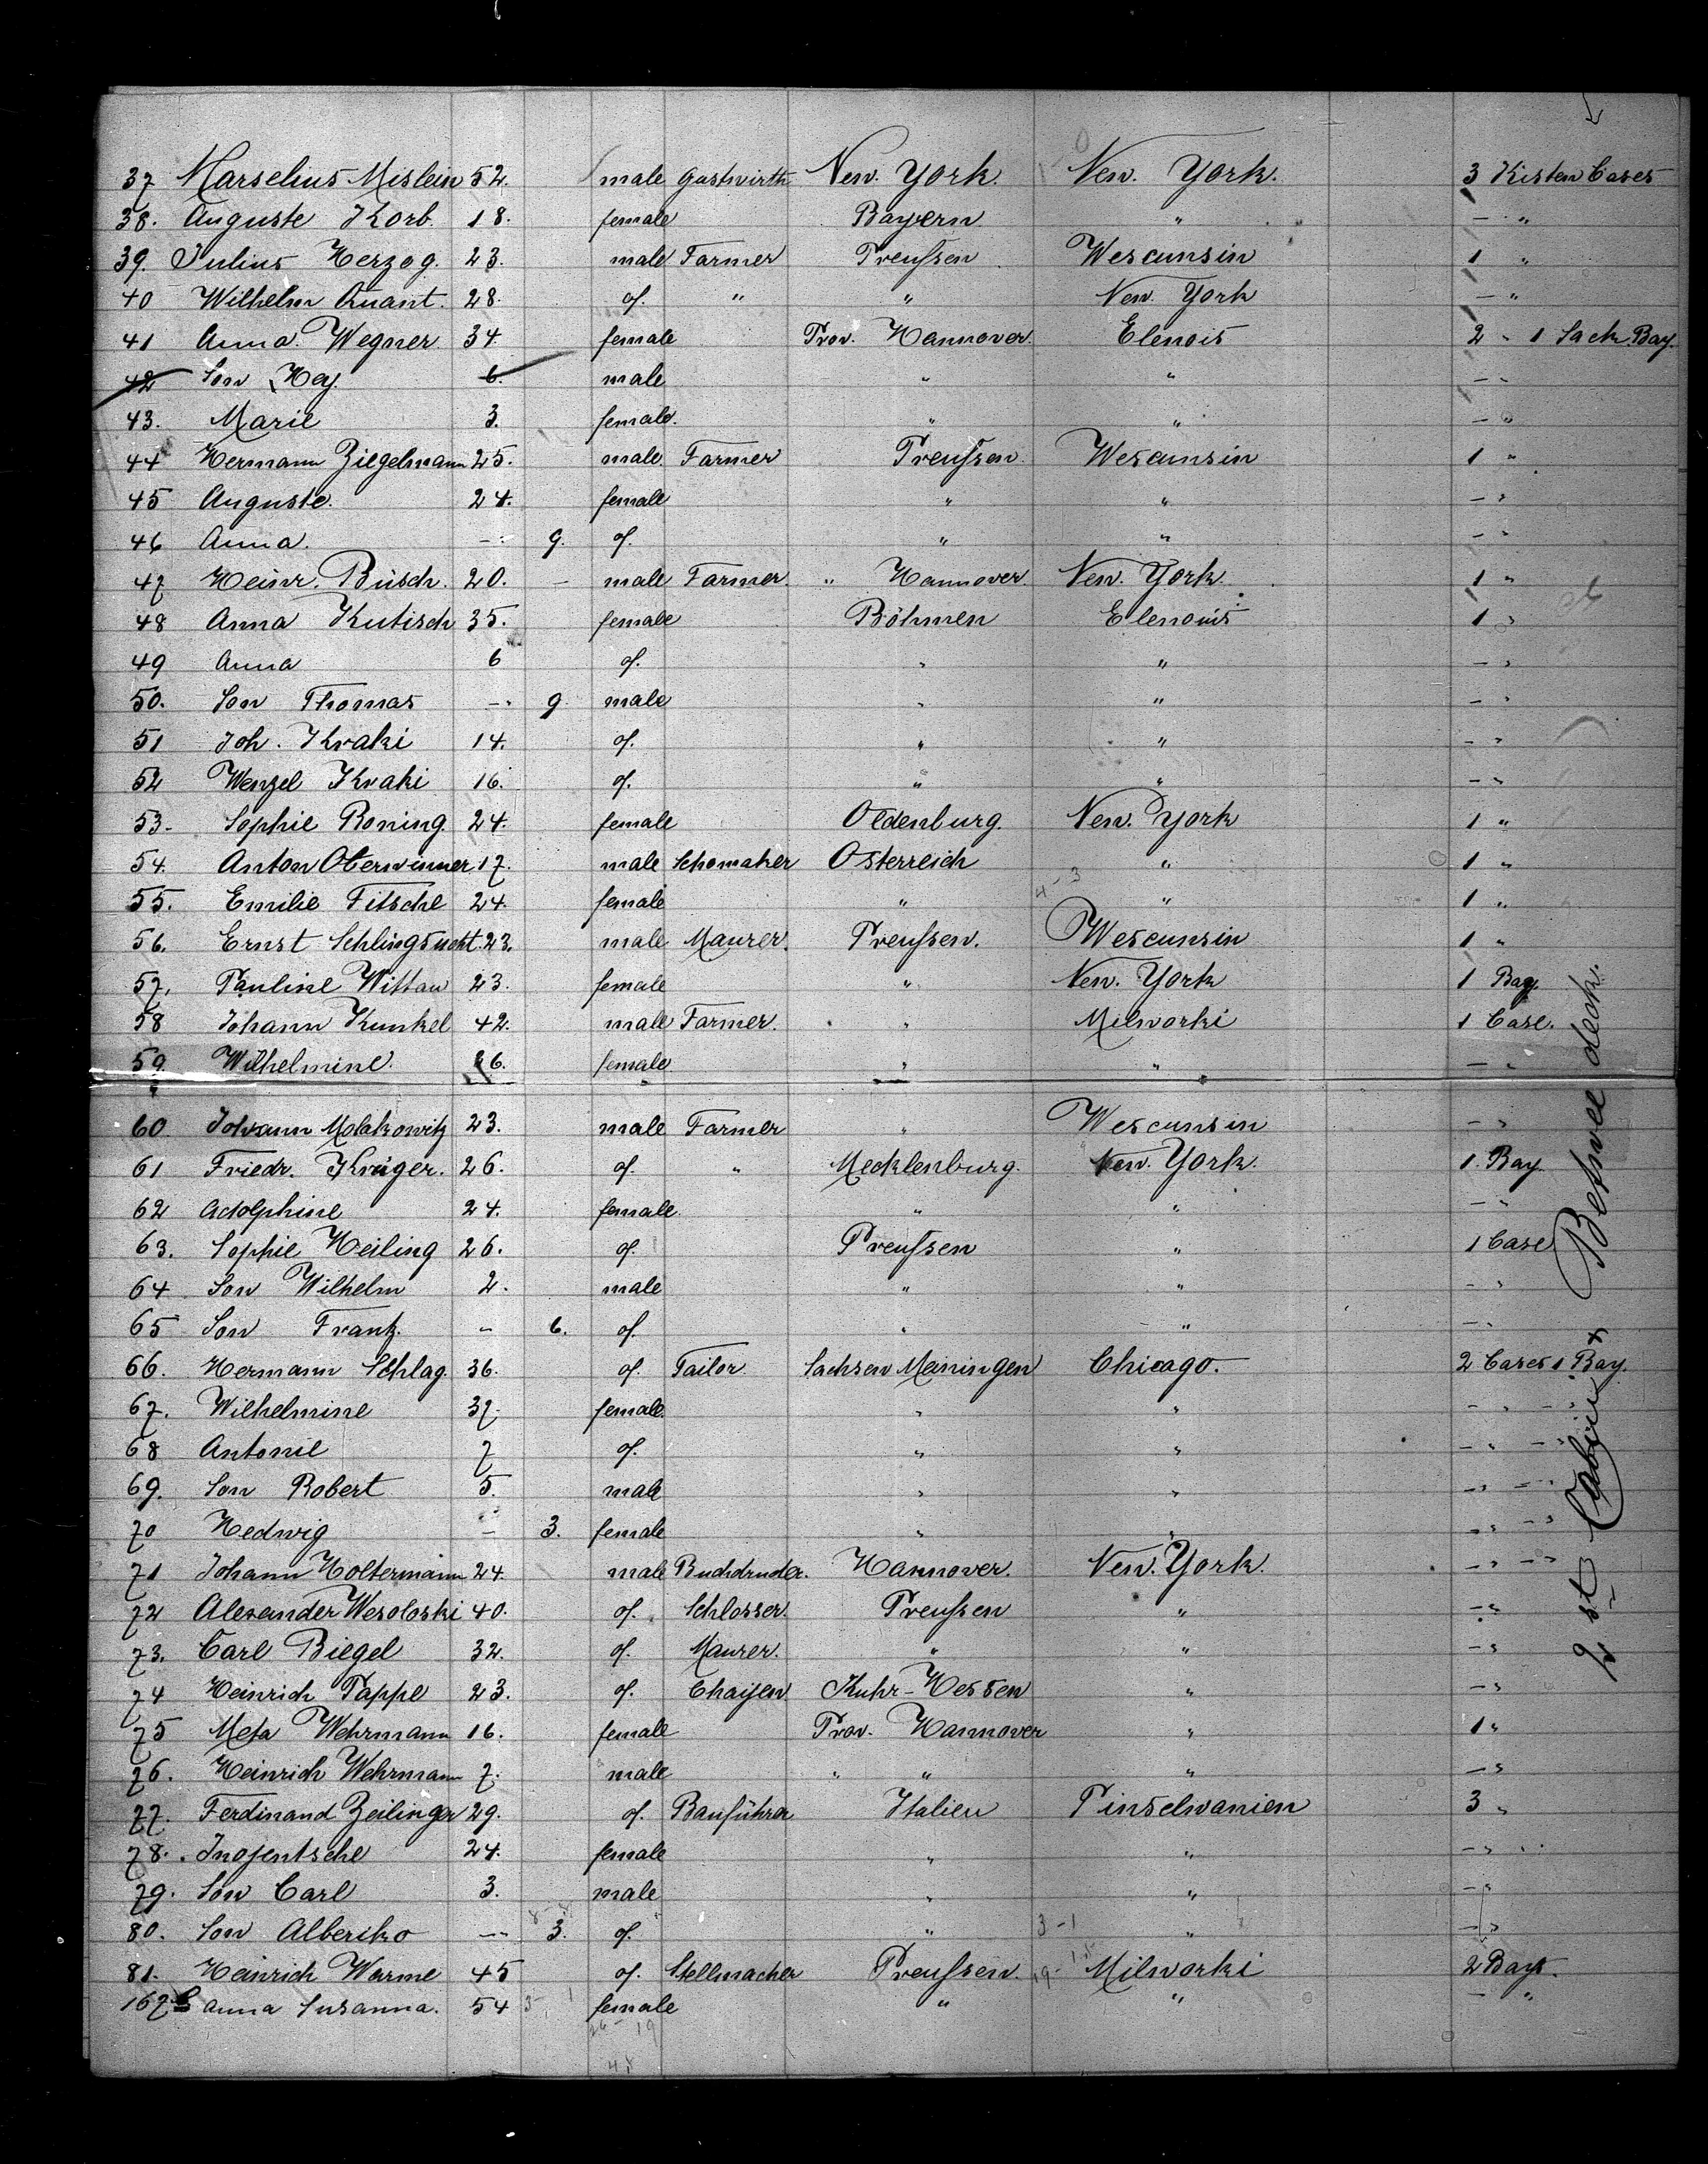 37 Marselius Mislein 52. male Gastwirth New. York. New. York. 3 Kisten Cases
38. Auguste Korb. 18. female Bayern " - "
39. Julius Herzog. 23. male Farmer Preußen Wescunsin 1 "
40 Wilhelm Quant. 28. of. " " New. York - "
41 Anna. Wegner 34. female Prov. Hannover. Elenois 2 " 1 Sack. Bay.
42 Son Hey. 6. male " " - "
43. Marie 3. female. " " - "
44 Hermann Ziegelmann 25. male. Farmer Preußen Wescunsin 1 "
45 Auguste. 24. female " " - "
46 Anna. - 9. of. " " - "
47 Heinr. Büsch. 20. - male Farmer. " Hannover. New. York. 1 "
48 Anna Kutisch 35. female Böhmen Elenois 1 "
49 Anna 6 of. " " - "
50. Son Thomas - 9 male " " - "
51 Joh. Kraki 14. of. " " - "
52 Wenzel Kraki 16. of. " " - "
53. Sophie Roning. 24. female Oldenburg. New. York 1 "
54. Anton Oberwimmer 17. male Schomaker Osterreich " 1 "
55. Emilie Fitsche 24. female " " 1 "
56. Ernst 23. male Maurer. Preußen. Wescunsin 1 "
57. Pauline Wittau 23. female " New. York 1 Bay.
58 Johann Kunkel 42. male Farmer. " Milworki 1 Case.
59. Wilhelmine. 6. female " " - "
60. Johann Molakowitz 23. male Farmer " Wescunsin - "
61 Friedr. Krüger. 26. of. " Mecklenburg. New. York. 1. Bay
62 Adolphine 24. female. " " - "
63. Sophie Heiling 26. of. Preußen " 1 Case
64 Son Wilhelm 2. male " " - "
65 Son Frantz. - 6. of. " " - "
66. Hermann Schlag. 36. of. Tailor. Sachsen Meiningen Chicago. 2 Cases 1 Bay.
67. Wilhelmine 37 female. " " - " - "
68 Antonie 7 of. " " - " - "
69. Son Robert 5. male " " - " - "
70 Hedwig - 3. female " " - " - "
71 Johann Holtermann 24. male Buchdrucker. Hannover. New. York. - " - "
72 Alexander Wesoloski 40. of. Schlosser. Preußen " - "
73. Carl Biegel 32. of. Maurer. " " - "
74 Heinrich Pappe 23. of. Kuhr-Hessen " - "
75 Meta Wehrmann 16. female Prov. Hannover " 1 "
76. Heinrich Wehrmann 7. male " " " - "
77. Ferdinand Zeilinger 29. of. Bauführer Italien Pinselwanien 3 "
78. Inozentsche 24. female " " - "
79. Son Carl 3. male " " - "
80. Son Alberiko - 3. of. " " - "
81. Heinrich Warme 45 of. Stellmacher Preußen. Milworki 2 Bays.
167 Anna Susanna. 54 female " " - "
2st Cabin & Betwee deck.